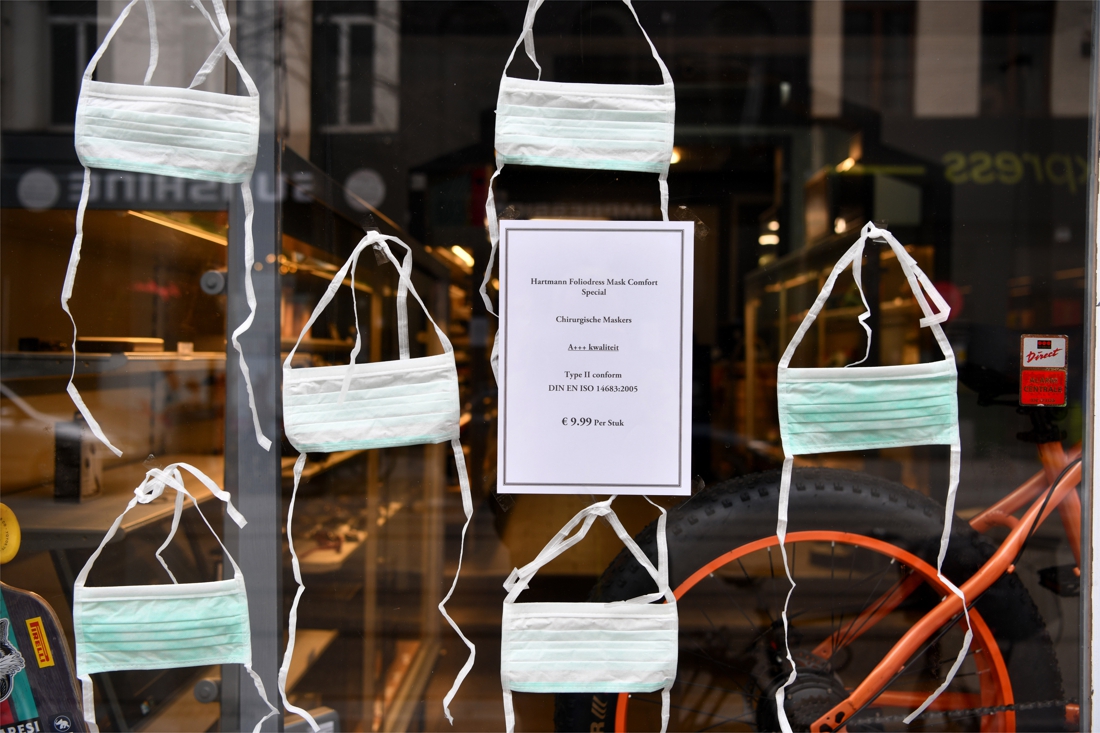 SUNSHINE
xpress
Hartmann Foliodress Mask Comfort
Special
Chirurgische Maskers
A+++ kwaliteit
Type II conform
DIN EN ISO 14683:2005
€ 9.99 Per Stuk
Direct
PIRELLI